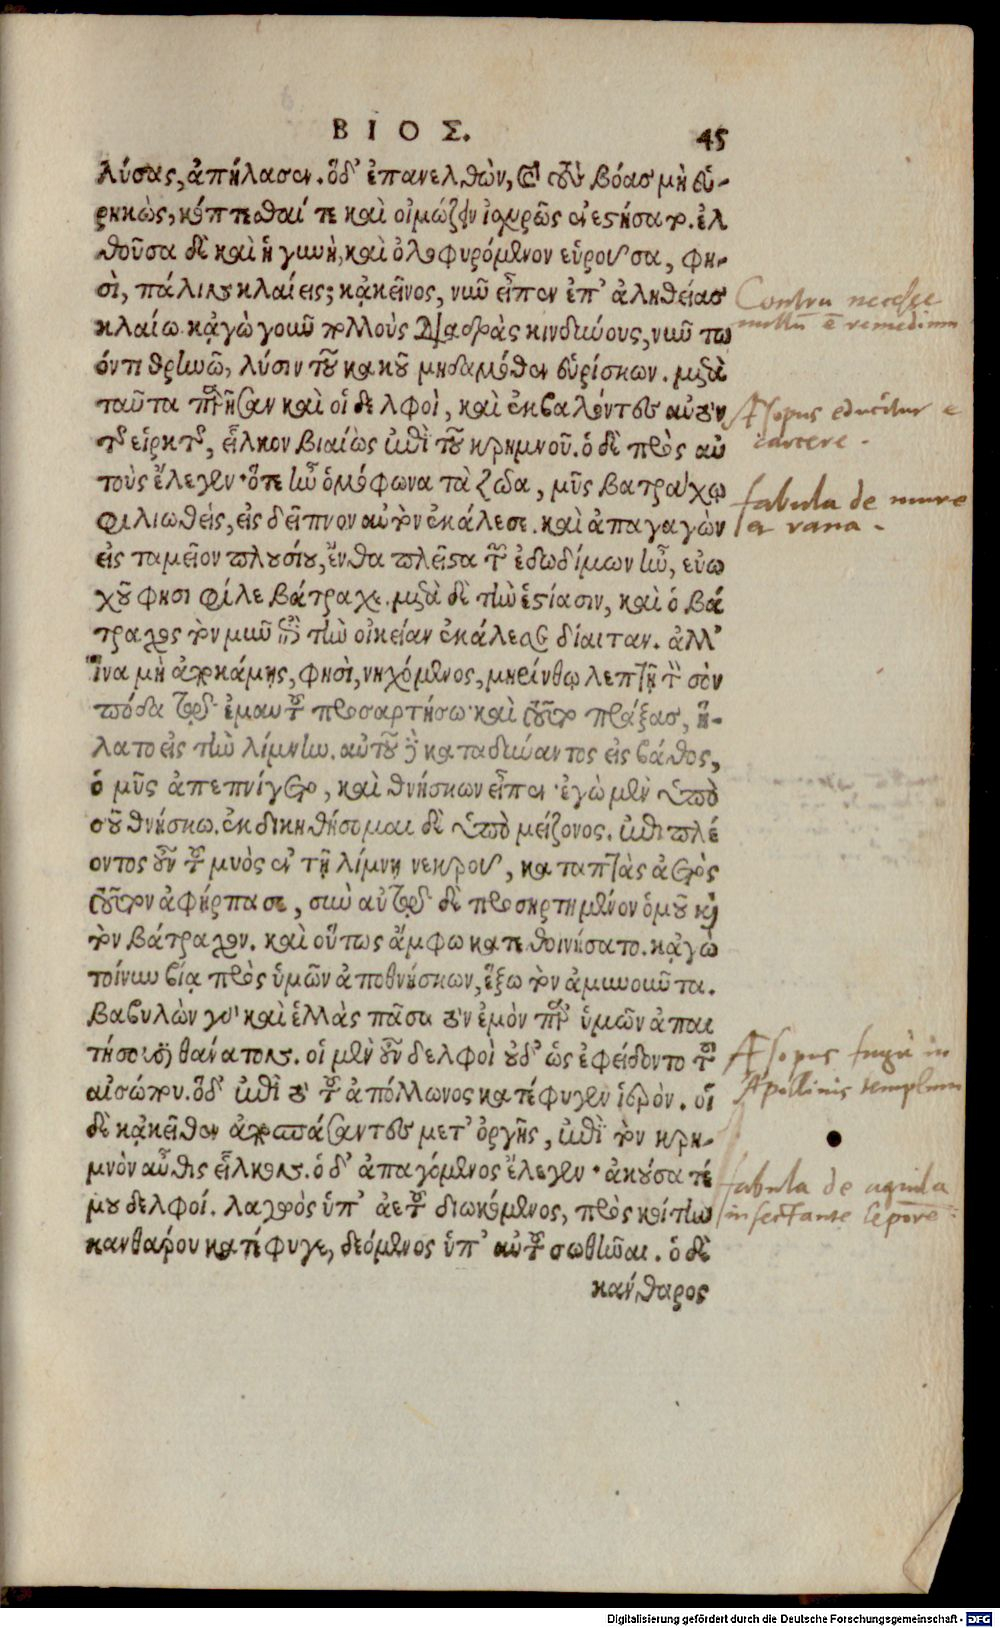 ΒΙΟΣ.
45
λύσας, ἀπήλασεν. ὁδ' ἐπανελθὼν, καὶ τοὺς βόας μὴ εὑ-
ρηκὼς, κόπτεσθαί τε καὶ οἰμώζειν ἰσχυρῶς ἀνεστήσατο. ἐλ
θοῦσα δὲ καὶ ἡ γυνὴ, καὶ ὀλοφυρόμενον εὑροῦσα, φη-
σὶ, πάλιν κλαίεις; κἀκεῖνος, νῦν εἶπεν ἐπ' ἀληθείας
κλαίω. κἀγὼ γοῦν πολλοὺς διαδρὰς κινδύνους, νῦν τῷ
ὄντι θρηνῶ, λύσιν τοῦ κακοῦ μηδαμόθεν εὑρίσκων. μετὰ
ταῦτα παρῆσαν καὶ οἱ δελφοὶ, καὶ ἐκβαλόντες αὐτὸν
τῆς εἱρκτῆς, εἷλκον βιαίως ἐπὶ τοῦ κρημνοῦ. ὁ δὲ πρὸς αὐ
τοὺς ἔλεγεν· ὅτε ἦν ὁμόφωνα τὰ ζῶα, μῦς βατράχῳ
φιλιωθεὶς, εἰς δεῖπνον αὐτὸν ἐκάλεσε. καὶ ἀπαγαγὼν
εἰς ταμεῖον πλουσίου, ἔνθα πλεῖστα τῶν ἐδωδίμων ἦν, εὐω
χοῦ φησι φίλε βάτραχε. μετὰ δὲ τὴν ἑστίασιν, καὶ ὁ βά
τραχος τὸν μῦν ἐπὶ τὴν οἰκείαν ἐκάλεσε δίαιταν. ἀλλ'
ἵνα μὴ ἀποκάμῃς, φησὶ, νηχόμενος, μηρίνθῳ λεπτῇ τὸν σὸν
πόδα τῷ ἐμαυτοῦ προσαρτήσω· καὶ τοῦτο πράξας, ἥ-
λατο εἰς τὴν λίμνην. αὐτοῦ δὲ καταδύναντος εἰς βάθος,
ὁ μῦς ἀπεπνίγετο, καὶ θνήσκων εἶπεν· ἐγὼ μὲν ὑπὸ
σοῦ θνήσκω. ἐκδικηθήσομαι δὲ ὑπὸ μείζονος. ἐπιπλέ
οντος οὖν τοῦ μυὸς ἐν τῇ λίμνῃ νεκροῦ, καταπτὰς ἀετὸς
τοῦτον ἀφήρπασε, σὺν αὐτῷ δὲ προσηρτημένον ὁμοῦ καὶ
τὸν βάτραχον. καὶ οὕτως ἄμφω κατεθοινήσατο. κἀγὼ
τοίνυν βίᾳ πρὸς ὑμῶν ἀποθνήσκων, ἕξω τὸν ἀμυνοῦντα.
βαβυλὼν γὰρ καὶ ἑλλὰς πᾶσα τὸν ἐμὸν παρ' ὑμῶν ἀπαι
τήσουσι θάνατον. οἱ μὲν οὖν δελφοὶ οὐδ' ὡς ἐφείδοντο τοῦ
αἰσώπου. ὁδ' ἐπὶ τὸ τοῦ ἀπόλλωνος κατέφυγεν ἱερόν. οἱ
δὲ κἀκεῖθεν ἀποσπάσαντες μετ' ὀργῆς, ἐπὶ τὸν κρη-
μνὸν αὖθις εἷλκον. ὁ δ' ἀπαγόμενος ἔλεγεν· ἀκούσατέ
μου δελφοί. λαγωὸς ὑπ' ἀετοῦ διωκόμενος, πρὸς κοίτην
κανθάρου κατέφυγε, δεόμενος ὑπ' αὐτοῦ σωθῆναι. ὁ δὲ
κάνθαρος
Contra necesse
nullū ē remedium
Æsopus educitur e
carcere.
fabula de mure
et rana.
Æsopus fugit in
Apollinis templum
fabula de aquila
insectante lepore.
Digitalisierung gefördert durch die Deutsche Forschungsgemeinschaft - DFG